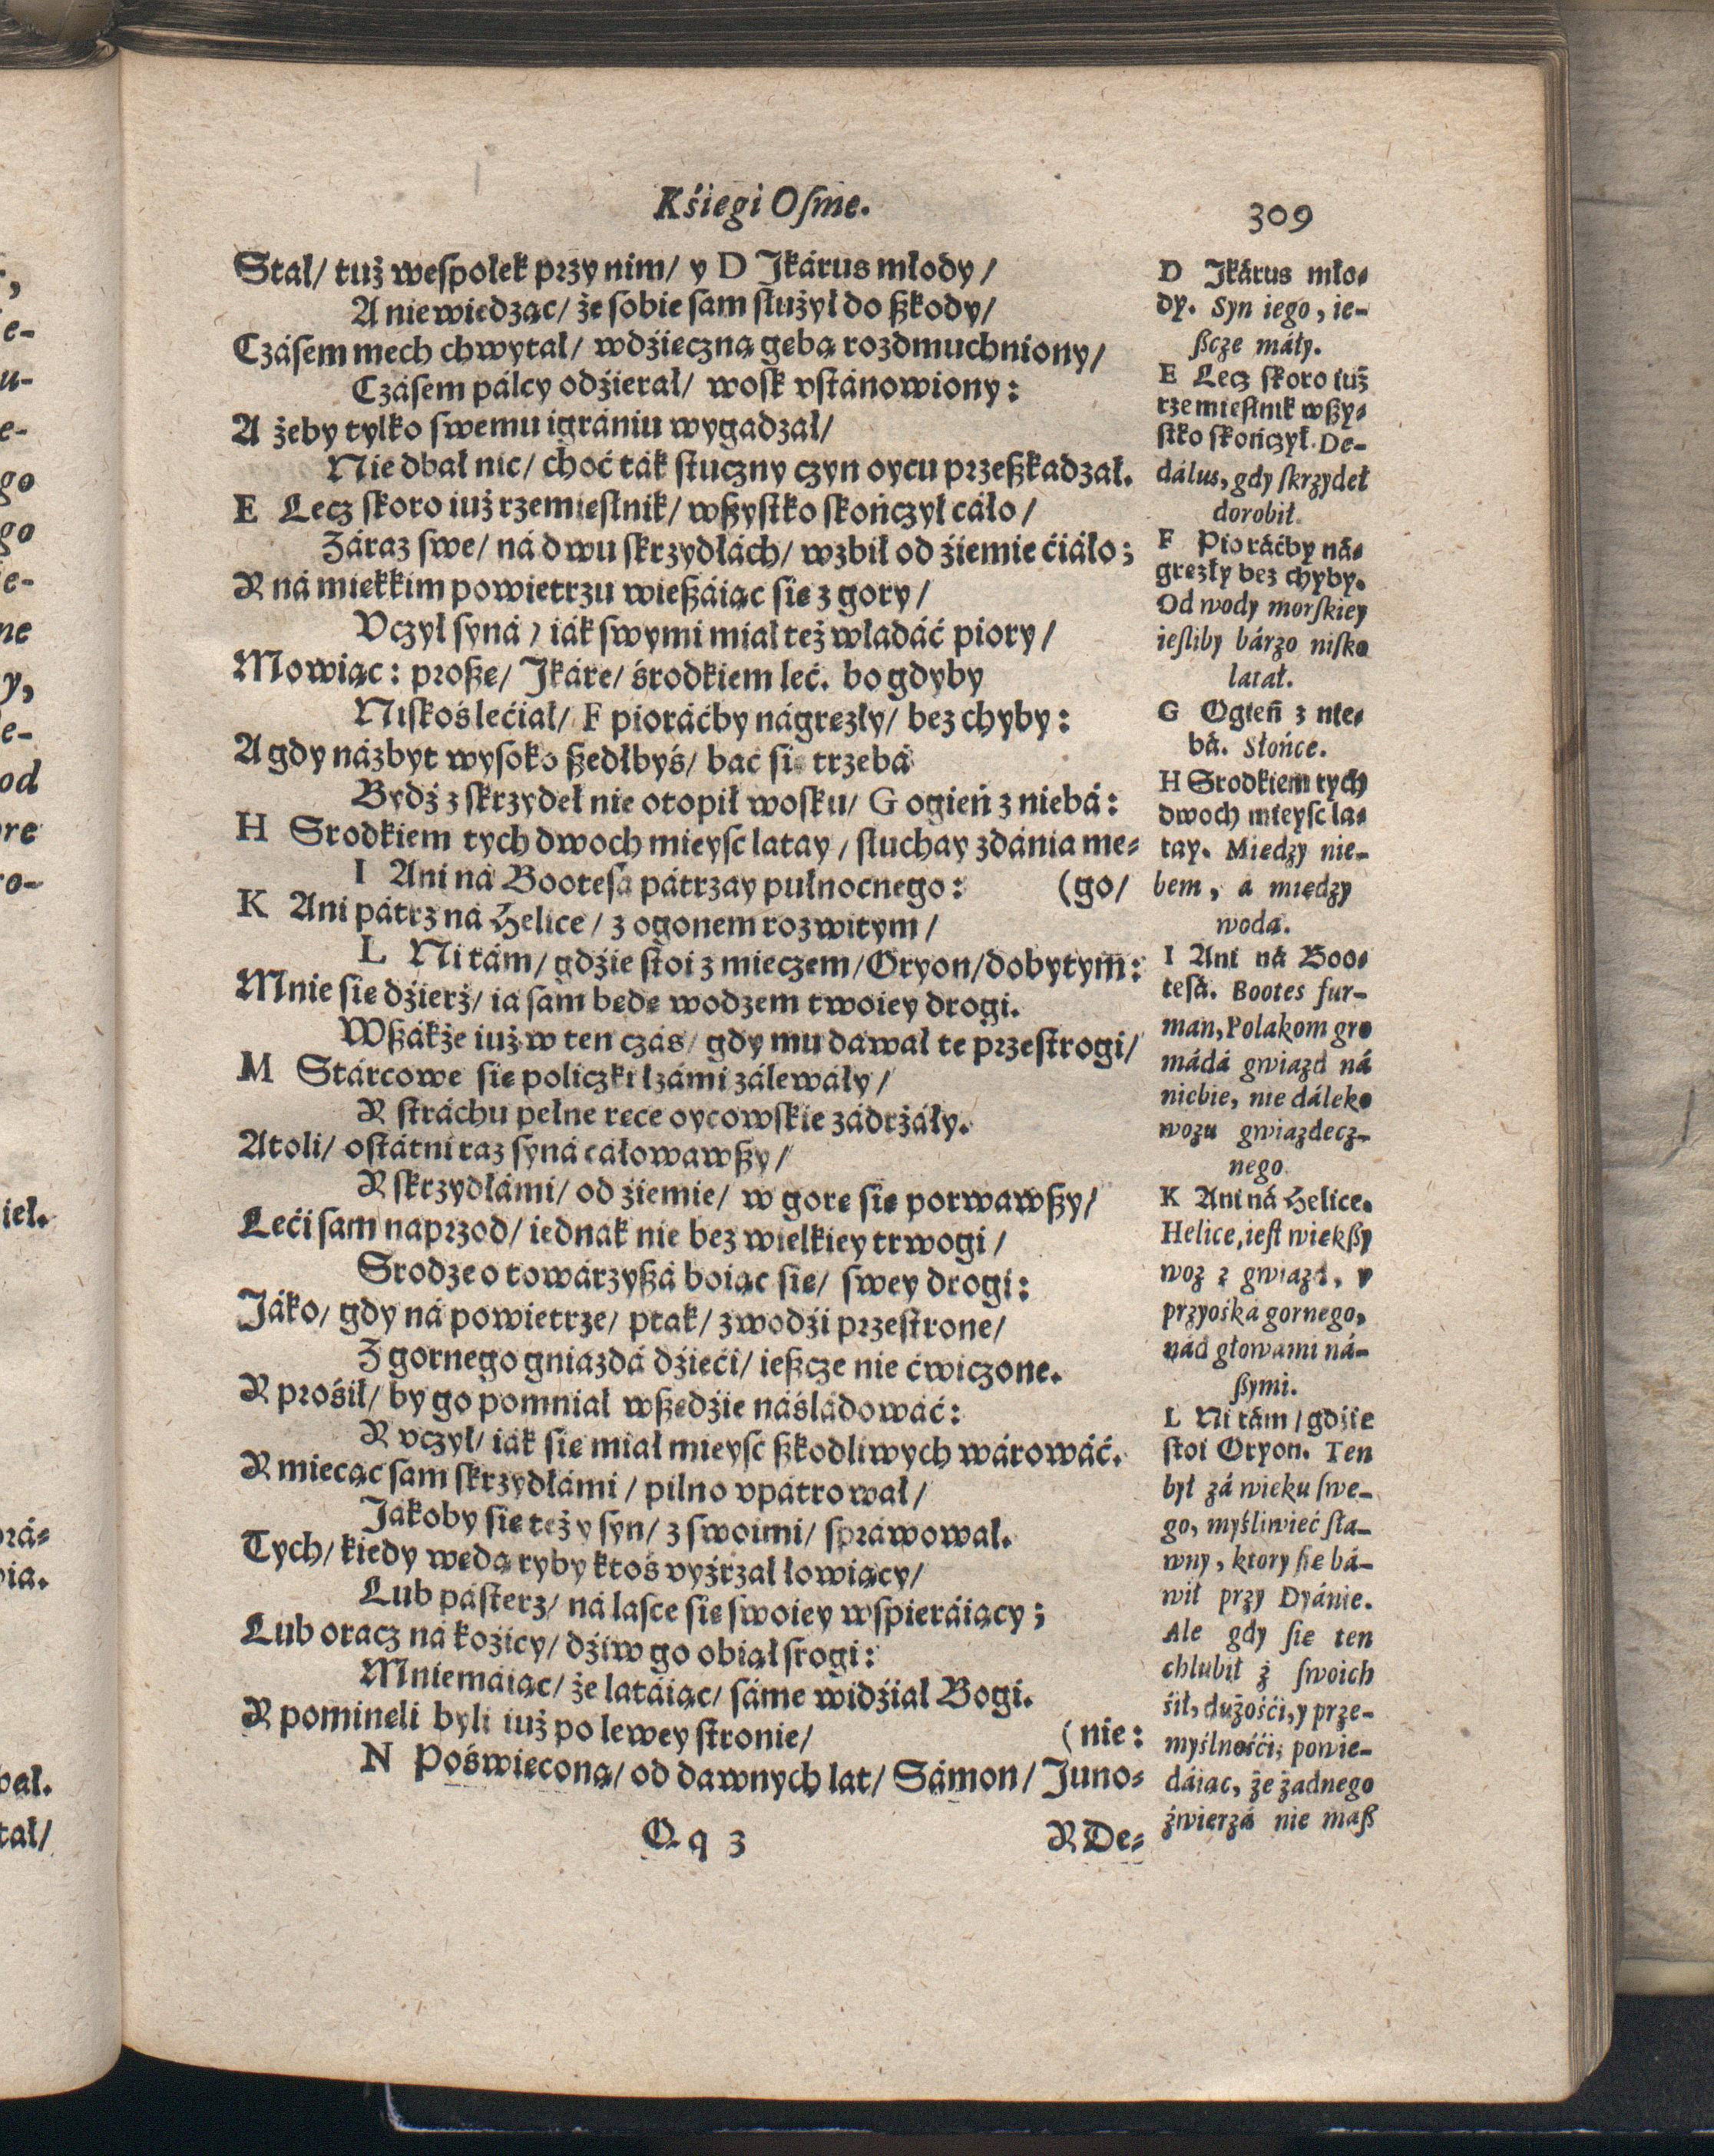 Kśiegi Oſme.
309
Stał/ tuż weſpołek przy nim/ y D Jkárus młody/
A nie wiedząc/ że ſobie ſam ſłużył do ßkody/
Czáſem mech chwytał/ wdźieczną gebą rozdmuchniony/
Czáſem pálcy odźierał/ woſk vſtánowiony:
A żeby tylko ſwemu igrániu wygadzał/
Nie dbał nic/ choć ták ſtuczny czyn oycu przeßkadzał.
E Lecz ſkoro iuż rzemieſlnik/ wßyſtko ſkończył cáło/
Záraz ſwe/ ná dwu ſkrzydłách/ wzbił od źiemie ćiáło;
Y ná miekkim powietrzu wießáiąc ſie z gory/
Vczył ſyná/ iák ſwymi miał też władáć piory/
Mowiąc: proße/ Jkáre/ środkiem leć. bo gdyby
Niſkoś lećiał/ F pioráćby nágrezły/ bez chyby:
A gdy názbyt wyſoko ßedłbyś/ bać ſie trzebá
Bydź z ſkrzydeł nie otopił woſku/ G ogień z niebá:
H Srodkiem tych dwoch mieyſc latay/ ſłuchay zdánia me-
(go/
I Ani ná Booteſa pátrzay pułnocnego:
K Ani pátrz ná Helice/ z ogonem rozwitym/
L Ni tám/ gdźie ſtoi z mieczem/ Oryon/ dobytym:
Mnie ſie dźierż/ ia ſam bede wodzem twoiey drogi.
Wßákże iuż w ten czás/ gdy mu dawał te przeſtrogi/
M Stárcowe ſie policzki łzámi zálewáły/
Y ſtráchu pełne rece oycowſkie zádrżáły.
Atoli/ oſtátni raz ſyná cáłowawßy/
Y ſkrzydłámi/ od źiemie/ w gore ſie porwawßy/
Leći ſam naprzod/ iednak nie bez wielkiey trwogi/
Srodze o towárzyßá boiąc ſie/ ſwey drogi:
Jáko/ gdy ná powietrze/ ptak/ zwodźi przeſtrone/
Z gornego gniazdá dźieći/ ießcze nie ćwiczone.
Y prośił/ by go pomniał wßedźie náśládowáć:
Y vczył/ iák ſie miał mieyſc ßkodliwych wárowáć.
Y miecąc ſam ſkrzydłámi/ pilno vpátrował/
Jákoby ſie też y ſyn/ z ſwoimi/ ſpráwował.
Tych/ kiedy wedą ryby ktoś vyźrzał łowiący/
Lub páſterz/ ná laſce ſie ſwoiey wſpieráiący;
Lub oracz ná koźicy/ dźiw go obiął ſrogi:
Mniemáiąc/ że latáiąc/ ſáme widźiał Bogi.
Y pomineli byli iuż po lewey ſtronie/
(nie:
N Poświeconą/ od dawnych lat/ Sámon/ Juno-
Q q 3
Y De-
D Jkárus mło-
dy. Syn iego, ie-
ßcze máły.
E Lecz ſkoro iuż
rzemieſlnik wßy-
ſtko ſkończył. De-
dálus, gdy ſkrzydeł
dorobił.
F Pioráćby ná-
grezły bez chyby.
Od wody morſkiey
ieſliby bárzo niſko
latał.
G Ogień z nie-
bá. Słońce.
H Srodkiem tych
dwoch mieyſc la-
tay. Miedzy nie-
bem, a miedzy
wodą.
I Ani ná Boo-
teſá. Bootes fur-
man, Polakom gro
mádá gwiazd ná
niebie, nie dáleko
wozu gwiazdecz-
nego.
K Ani ná Helice.
Helice, ieſt wiekßy
woz z gwiazd, y
przyośká gornego,
nád głowami ná-
ßymi.
L Ni tám/ gdźie
ſtoi Oryon. Ten
był zá wieku ſwe-
go, myśliwieć ſła-
wny, ktory ſie bá-
wił przy Dyánie.
Ale gdy ſie ten
chlubił z ſwoich
śił, dużośći, y prze-
myślnośći; powie-
dáiąc, że żadnego
źwierzá nie maß